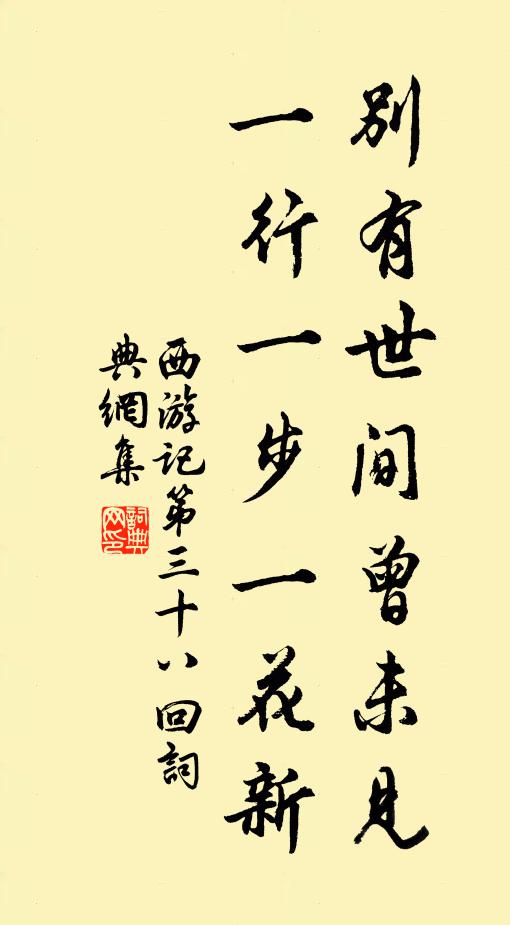 别有世间曾未见
一行一步一花新
西游记第三十八回詞
典網集
詞典
网印